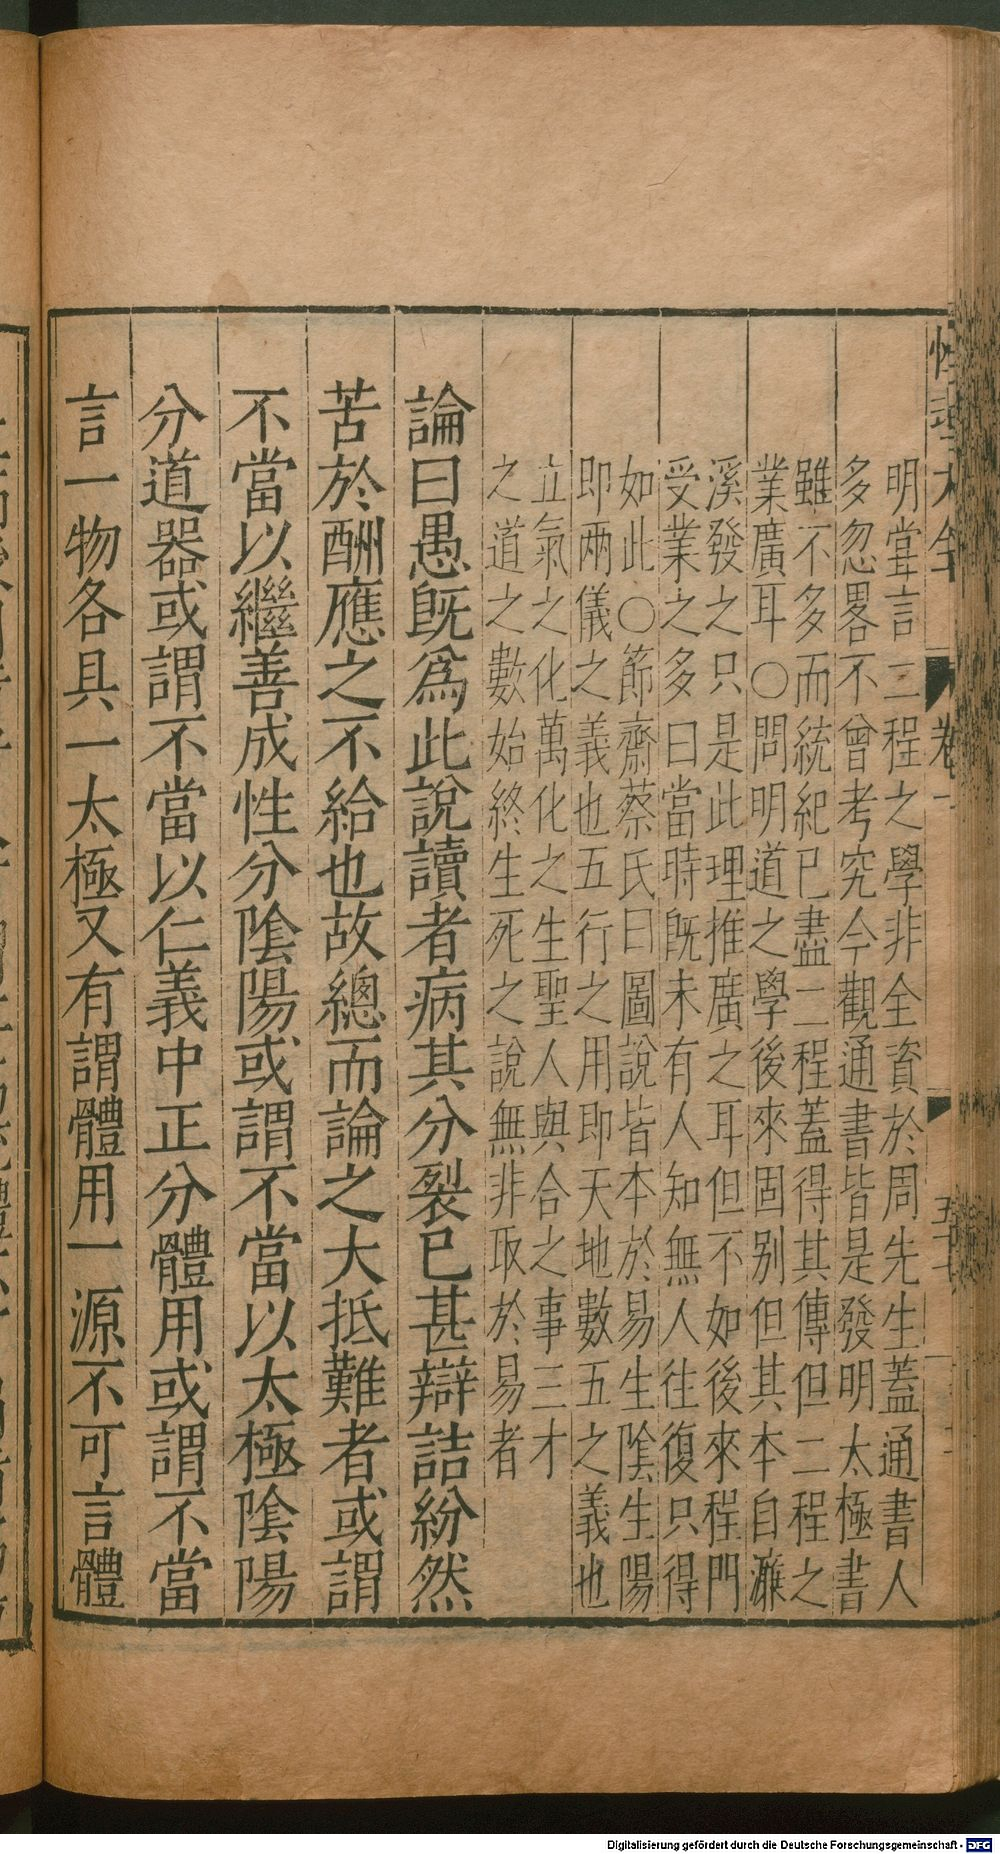 性理大全 卷一
明嘗言二程之學非全資於周先生蓋通書人
多忽畧不曾考究今觀通書皆是發明太極書
雖不多而統紀已盡二程蓋得其傳但二程之
業廣耳○問明道之學後來固别但其本自濂
溪發之只是此理推廣之耳但不如後來程門
受業之多曰當時旣未有人知無人往復只得
如此○節齋蔡氏曰圖說皆本於易生陰生陽
即兩儀之義也五行之用即天地數五之義也
立氣之化萬化之生聖人與合之事三才
之道之數始終生死之說無非取於易者
論曰愚旣爲此說讀者病其分裂已甚辯詰紛然
苦於酬應之不給也故總而論之大抵難者或謂
不當以繼善成性分陰陽或謂不當以太極陰陽
分道器或謂不當以仁義中正分體用或謂不當
言一物各具一太極又有謂體用一源不可言體
Digitalisierung gefördert durch die Deutsche Forschungsgemeinschaft - DFG